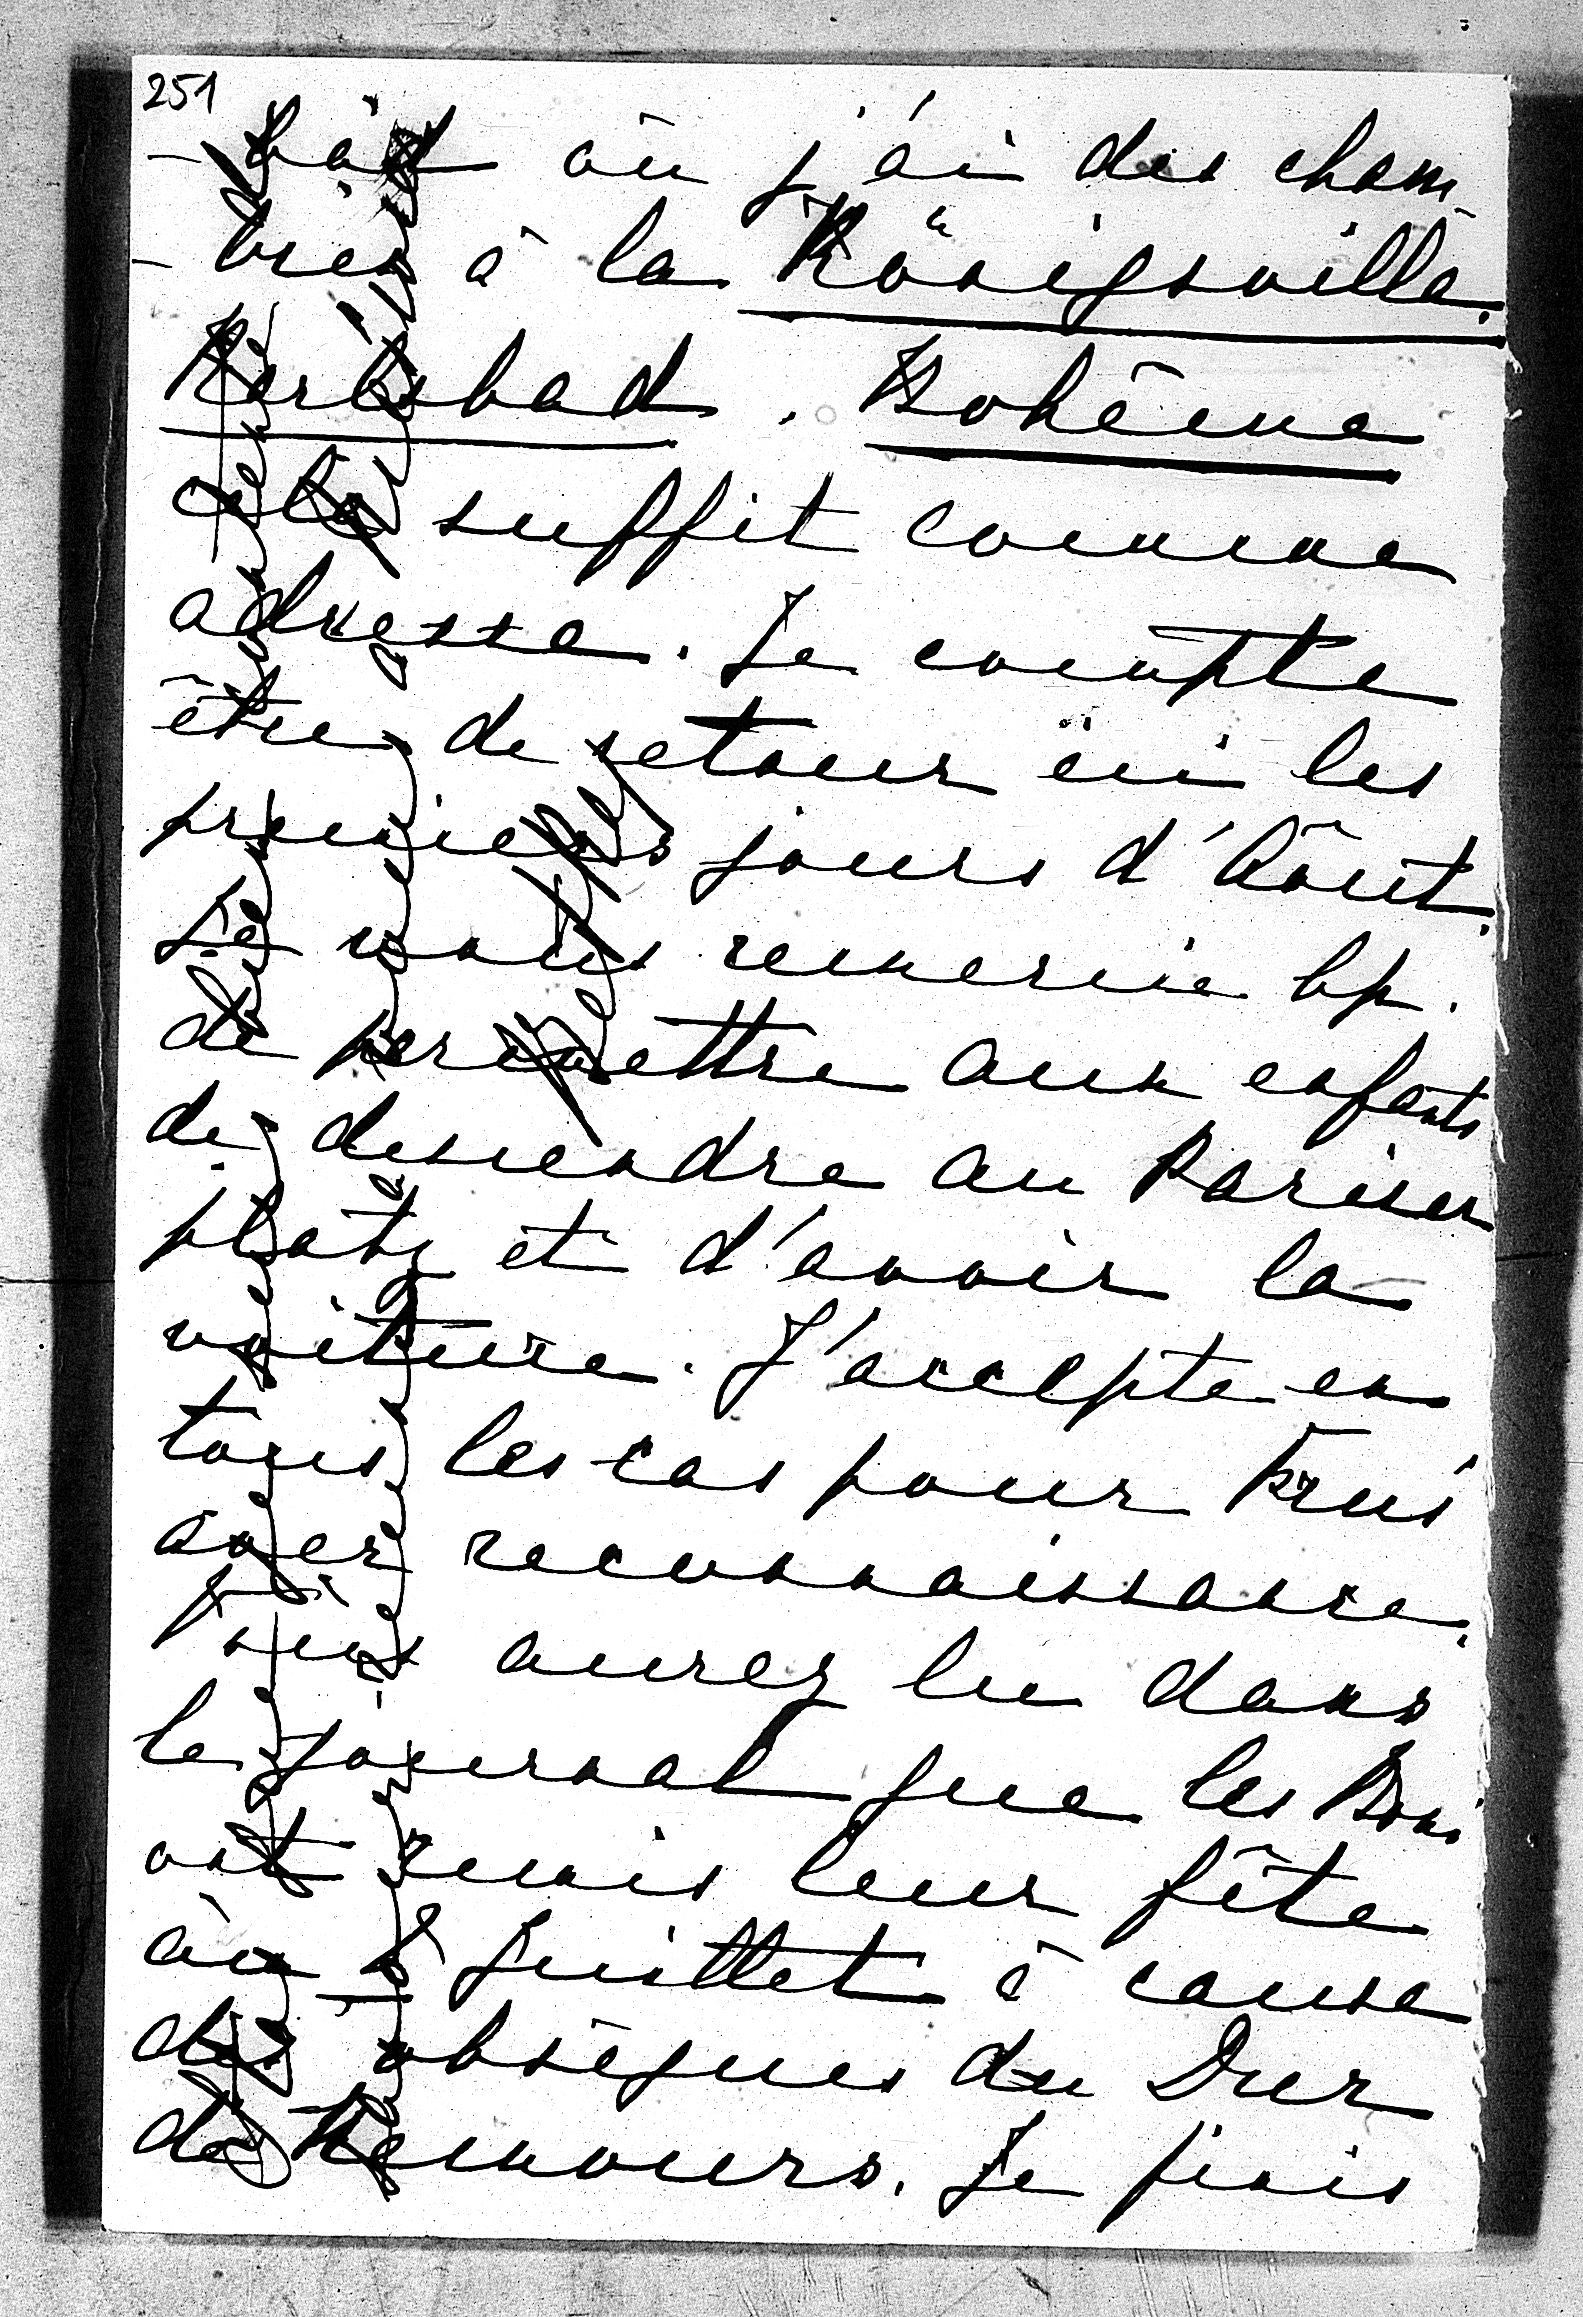 251
- bad où j'ai des cham
- bres à la Königsvilla.
Karlsbad. Bohême
cela suffit comme
adresse. Je compte
être de retour ici les
premiers jours d'Août.
Je vous remercie bp.
de permettre aux enfants
de descendre au Pariser
platz et d'avoir la
voiture. J'accepte en
tous les cas pour
avec reconnaissance.
Vous aurez lu dans
le journal que les
ont remis leur fête
au 2 Juillet à cause
des obsèques du Duc
de Nemours. Je finis